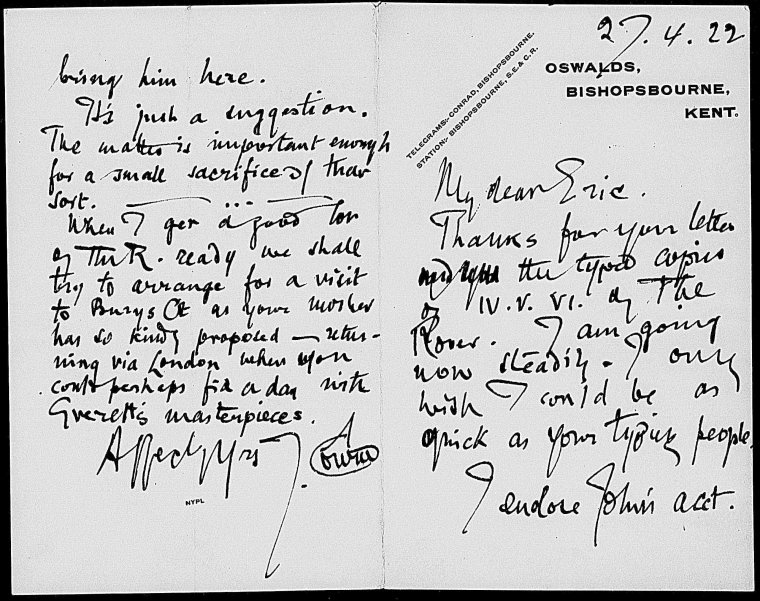 27.4.22
OSWALDS,
BISHOPSBOURNE,
KENT.
TELEGRAMS:-CONRAD, BISHOPSBOURNE.
STATION:- BISHOPSBOURNE, S.E.& C.R.
My dear Eric.
Thanks for your letter
and the typed copies
of IV. V. VI. of The
Rover. I am going
now steadily. I only
wish I could be as
quick as your typing people.
I endorse John's acct.
bring him here.
It's just a suggestion.
The matter is important enough
for a small sacrifice of that
sort. — ... —
When I get a good lot
of The R. ready we shall
try to arrange for a visit
to Burys Ct as your mother
has so kindly proposed — retur-
ning via London when you
could perhaps fix a day with
Everett's masterpieces.
Affectly Yrs
J.
NYPL